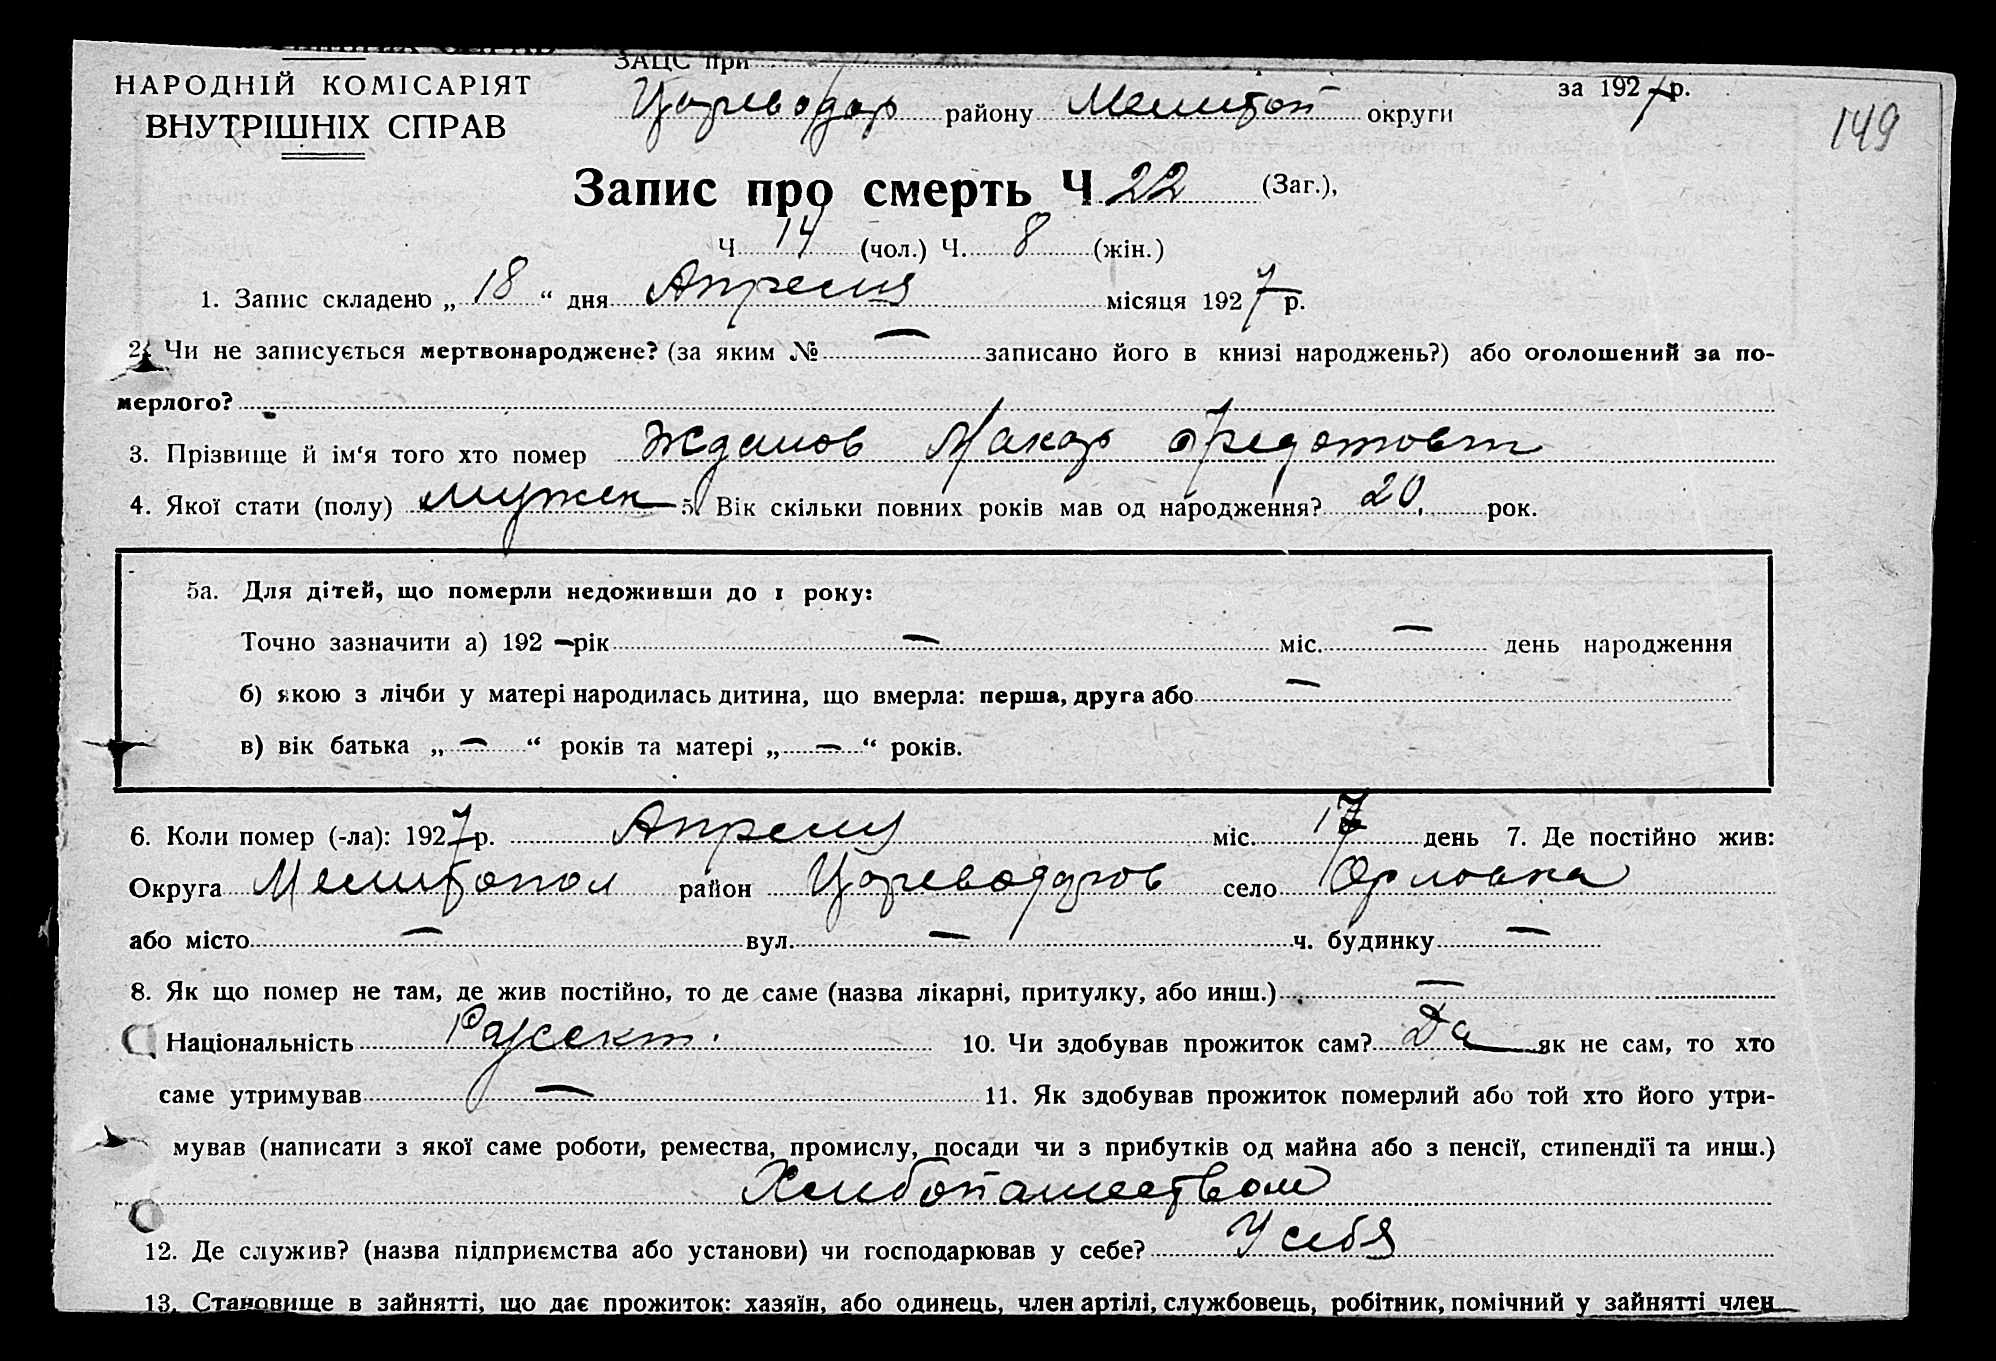 ЗАЦС при
НАРОДНІЙ КОМІСАРІЯТ
ВНУТРІШНІХ СПРАВ
Цареводар району Мелитоп округи
за 1927 р.
149
Запис про смерть Ч 22 (Заг.),
Ч 14 (чол.) Ч. 8 (жін.)
1. Запис складено „ 18 “ дня Апреля місяця 1927 р.
2. Чи не записується мертвонароджене? (за яким № — записано його в книзі народжень?) або оголошений за по-
мерлого?
3. Прізвище й ім'я того хто помер Жданов Макар Федотовт
4. Якої стати (полу) мужск 5. Вік скільки повних років мав од народження? 20 рок.
5а. Для дітей, що померли недоживши до 1 року:
Точно зазначити а) 192 — рік — міс. — день народження
б) якою з лічби у матері народилась дитина, що вмерла: перша, друга або —
в) вік батька „ — “ років та матері „ — “ років.
6. Коли помер (-ла): 1927 р. Апрелу міс. 17 день 7. Де постійно жив:
Округа Мелитопол район Цареводаров село Орловка
або місто — вул. — ч. будинку —
8. Як що помер не там, де жив постійно, то де саме (назва лікарні, притулку, або инш.) —
Національність Русскт. 10. Чи здобував прожиток сам? Да як не сам, то хто
саме утримував — 11. Як здобував прожиток померлий або той хто його утри-
мував (написати з якої саме роботи, ремества, промислу, посади чи з прибутків од майна або з пенсії, стипендії та инш.)
Хлибопашеством
12. Де служив? (назва підприємства або установи) чи господарював у себе? У себя
13. Становище в зайнятті, що дає прожиток: хазяїн, або одинець, член артілі, службовець, робітник, помічний у зайнятті член